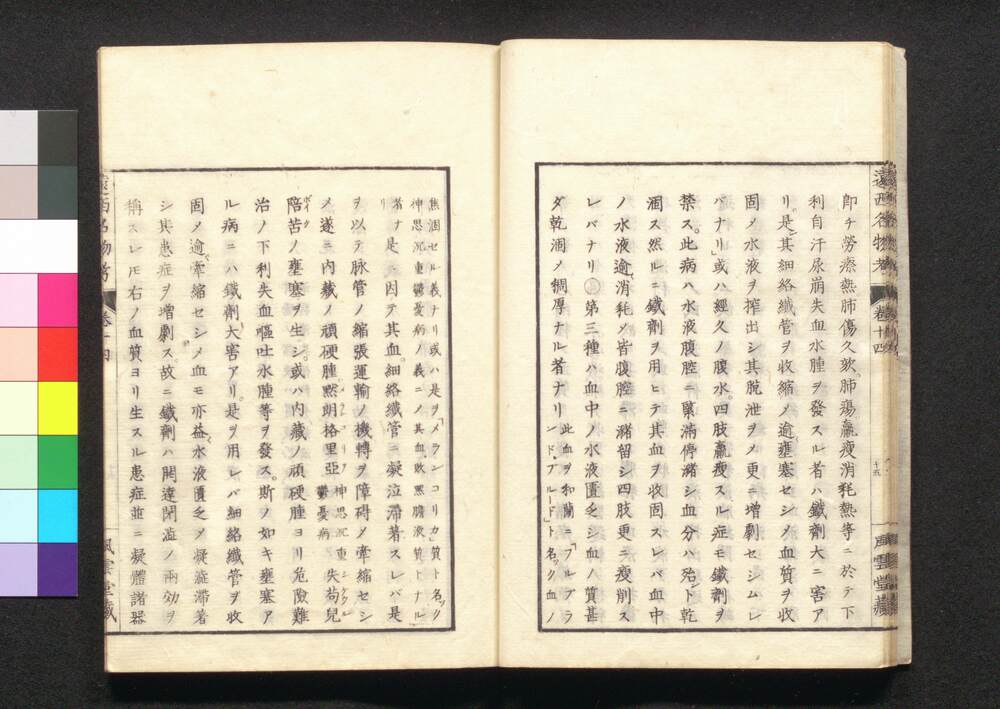 遠西名物考 卷十四 十六 風雲堂藏
即チ勞瘵熱肺傷久欬肺瘍羸瘦消耗熱等ニ於テ下
利自汗尿崩失血水腫ヲ發スル者ハ鐵劑大ニ害ア
リ是其細絡纖管ヲ收縮メ逾壅塞セシメ血質ヲ收
固メ水液ヲ搾出シ其脱泄ヲメ更ニ增劇セシムレ
バナリ或ハ經久ノ腹水四肢羸瘦スル症モ鐵劑ヲ
禁ス此病ハ水液腹腔ニ瀦滿停瀦シ血分ハ殆ント乾
涸ス然ルニ鐵劑ヲ用ヒテ其血ヲ收固スレバ血中
ノ水液逾消耗メ皆腹腔ニ瀦留シ四肢更ニ瘦削ス
レバナリ 第三種ハ血中ノ水液匱乏シ血ノ質甚
ダ乾涸ノ稠厚ナル者ナリ 此血ヲ和蘭ニ「ブルブラ
ンド・ブルード」ト名ツク血ノ
焦涸セル義ナリ或ハ是ヲメランコリカ質ト名ツク
神思沉重鬱憂病ノ義ニノ其血敗黑膽液質トナル
者ナリ 是ニ因テ其血細絡纖管ニ凝泣滯著スレバ是
ヲ以テ脉管ノ縮張運輸ノ機轉ヲ障碍ノ牽縮セシ
メ遂ニ內藏ノ頑硬腫黙朗格里亞 神思沉重鬱憂病 失荀兒
陪苦ノ壅塞ヲ生シ或ハ內藏ノ頑硬腫ヨリ危險難
治ノ下利失血嘔吐水腫等ヲ發ス斯ノ如キ壅塞ア
ル病ニハ鐵劑大害アリ是ヲ用レバ細絡纖管ヲ收
固メ逾牽縮セシメ血モ亦益水液匱乏ノ凝滯著
シ其患症ヲ增劇ス故ニ鐵劑ハ開達閉濫ノ兩効ヲ
稱スレ𪜈右ノ血質ヨリ生スル患症並ニ凝體諸器
遠西名物考 卷十四 風雲堂藏